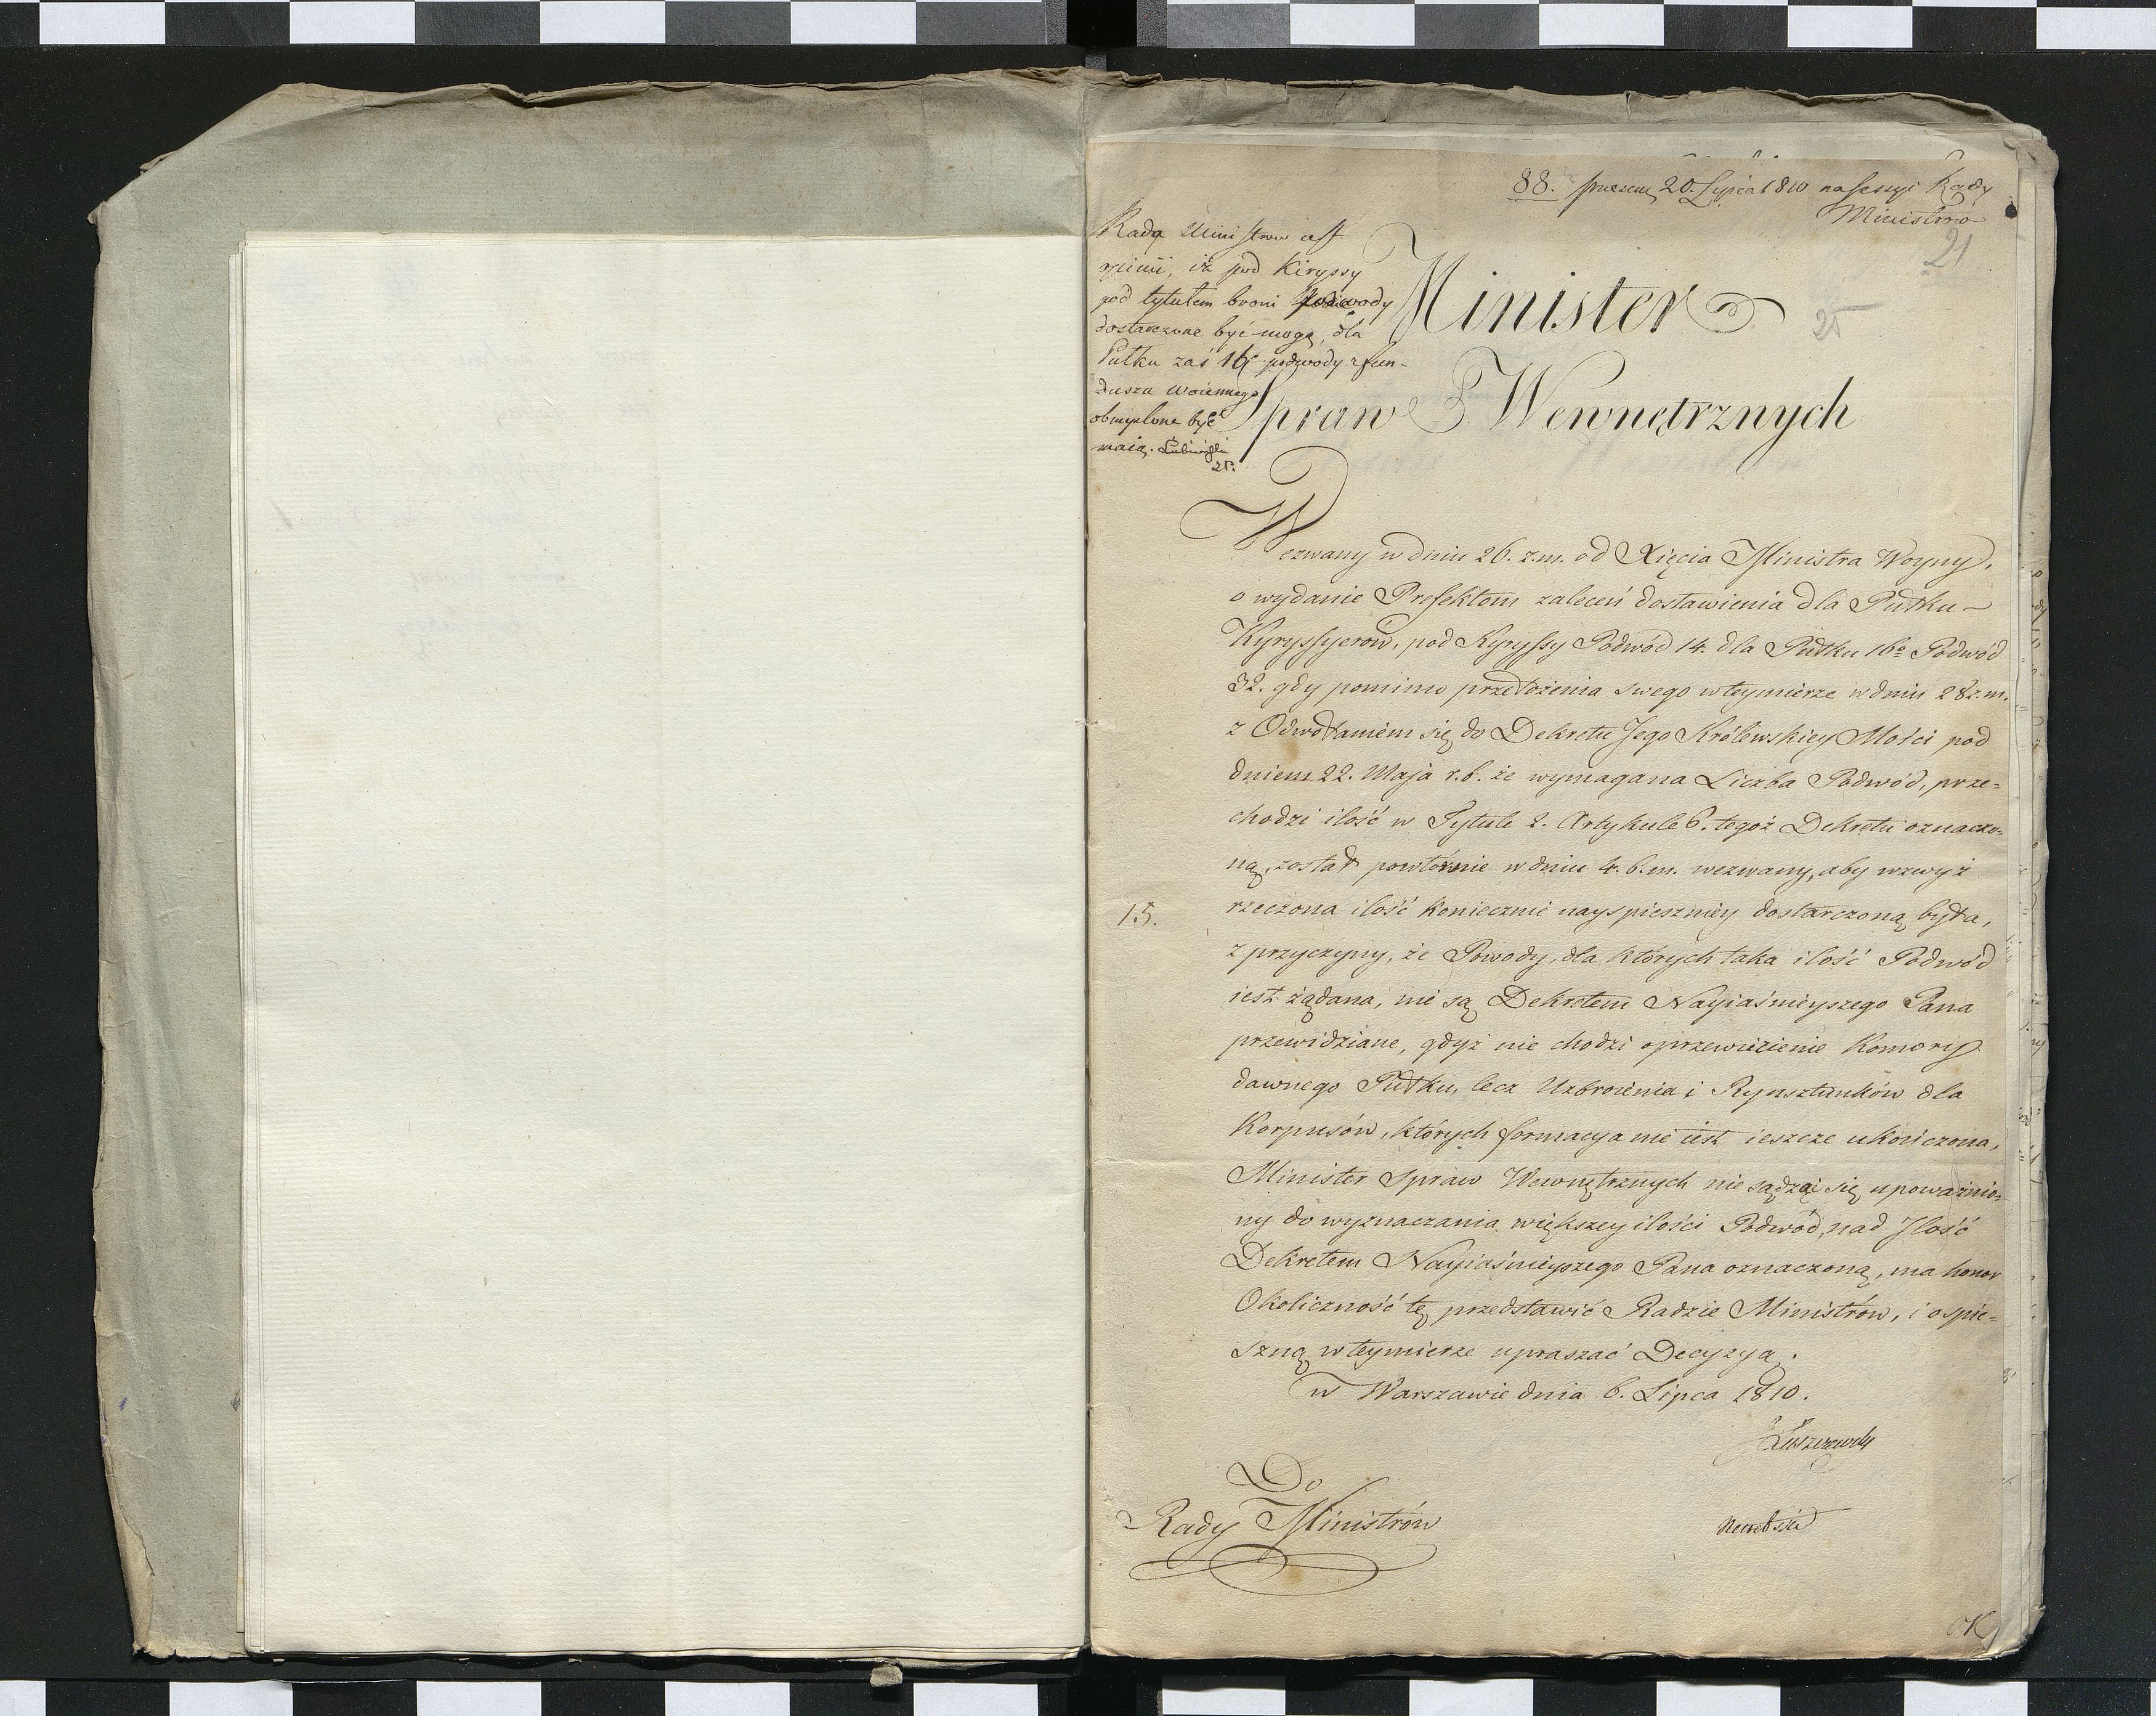 88. 20. Lipca 1810 na sessyi Rady
Ministrow
21
25
Rada Ministrow est
opinii, iż pod Kiryssy
pod tytułem broni podwody
dostarczone być mogą, dla
Pułku zaś 16 podwody z fun-
duszu woiennego
obmyslone być
maią. Lubieński
Minister
Spraw Wewnętrznych
Wezwany w dniu 26. z.m. od Xięcia Ministra Woyny,
o wydanie Prefektom zaleceń dostawienia dla Pułku
Kyryssyerow, pod Kyryssy Podwód 14. dla Pułku 16o Podwód
32. gdy pomimo przełożenia swego wteymierze w dniu 28 z.m.
z Odwołaniem się do Dekretu Jego Królewskiey Mości pod
dniem 22. Maja r.b. że wymagana Liczba Podwód, prze-
chodzi ilość w Tytule 2. Artykule 6. tegoż Dekretu oznaczo-
ną, został powtórnie w dniu 4. b.m. wezwany, aby wzwyż
15.
rzeczona ilość koniecznie nayspieszniey dostarczoną była,
z przyczyny, że Powody, dla których taka ilość Podwód
iest żądana, nie są Dekretem Nayiaśnieyszego Pana
przewidziane, gdyż nie chodzi oprzewiezienie Komory
dawnego Pułku, lecz Uzbroienia i Rynsztunków dla
Korpusów, których formacya nie iest ieszcze ukończona,
Minister Spraw Wewnętrznych nie sądząc się upoważnio-
ny do wyznaczania większey ilości Podwód, nad Jlość
Dekretem Nayiaśnieyszego Pana oznaczoną, ma honor
Okoliczność tę przedstawić Radzie Ministrów, i ospie-
szną wteymierze upraszać Decyzyą.
w Warszawie dnia 6. Lipca 1810.
Łuszczewski
Do
Rady Ministrów